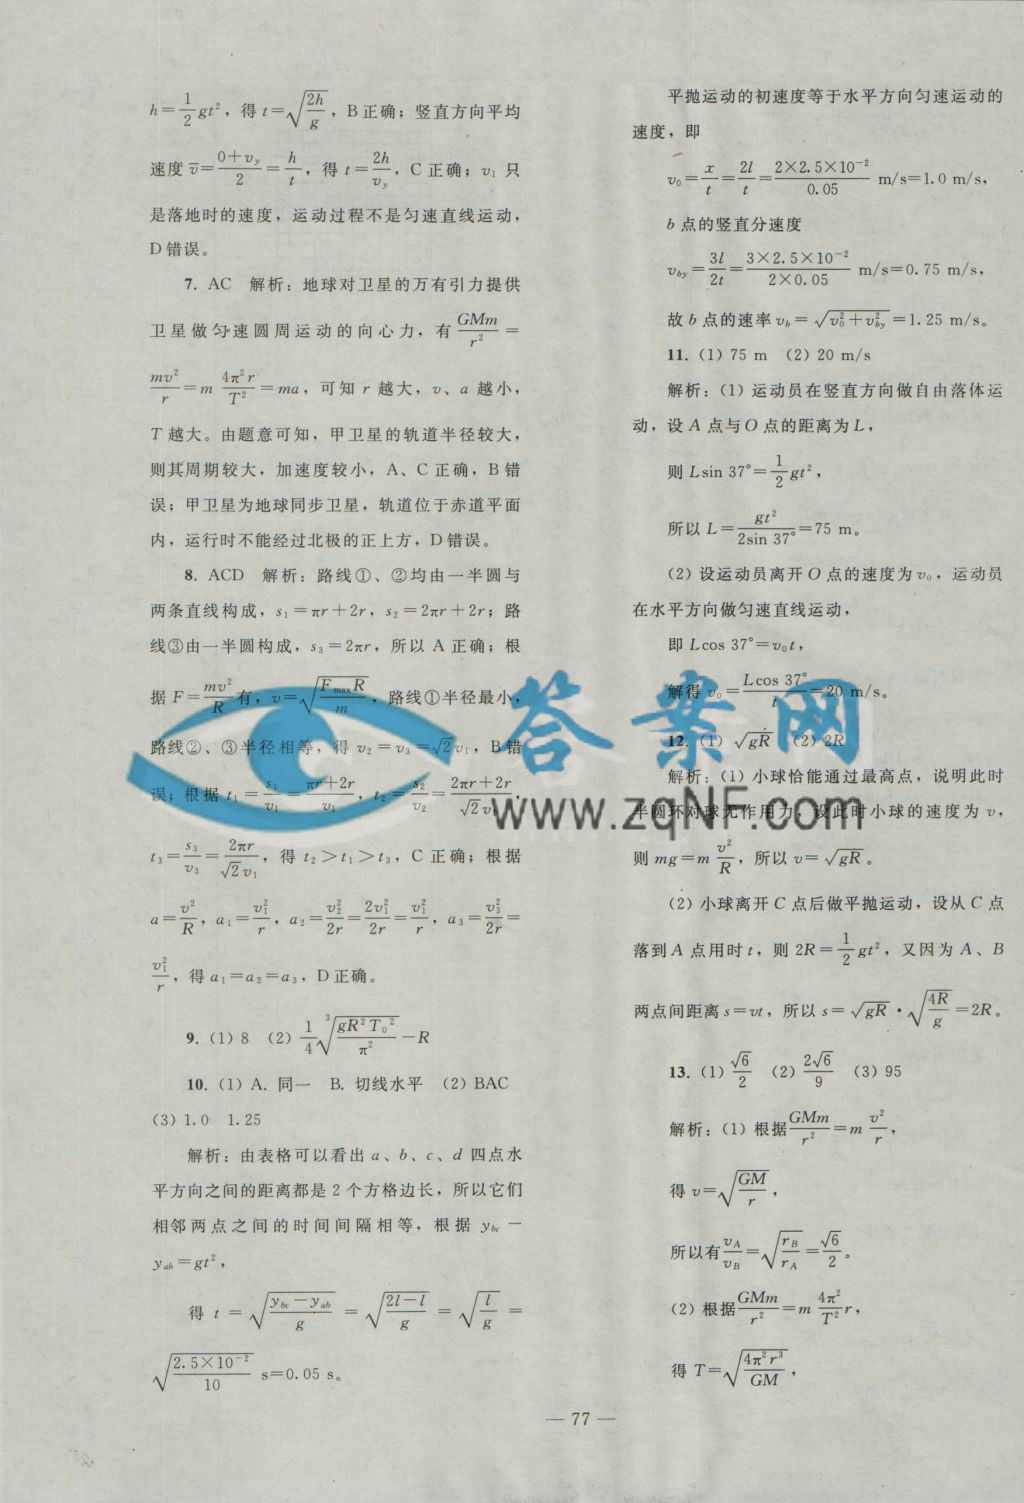 h=1/2 gt²，得 t=√(2h/g)，B正确；竖直方向平均
速度 v̄=(0+v_y)/2=h/t，得 t=2h/v_y，C 正确；v₁ 只
是落地时的速度，运动过程不是匀速直线运动，
D错误。
7. AC 解析：地球对卫星的万有引力提供
卫星做匀速圆周运动的向心力，有 GMm/r² =
mv²/r=m 4π²r/T²=ma，可知 r 越大，v、a 越小，
T 越大。由题意可知，甲卫星的轨道半径较大，
则其周期较大，加速度较小，A、C 正确，B 错
误；甲卫星为地球同步卫星，轨道位于赤道平面
内，运行时不能经过北极的正上方，D错误。
8. ACD 解析：路线①、②均由一半圆与
两条直线构成，s₁=πr+2r，s₂=2πr+2r；路
线③由一半圆构成，s₃=2πr，所以 A 正确；根
据 F=mv²/R 有，v=√(F_max R/m)，路线①半径最小，
路线②、③半径相等，得 v₂=v₃=√2 v₁，B错
误；根据 t₁=s₁/v₁=(πr+2r)/v₁，t₂=s₂/v₂=(2πr+2r)/(√2 v₁)，
t₃=s₃/v₃=2πr/(√2 v₁)，得 t₂>t₁>t₃，C 正确；根据
a=v²/R，a₁=v₁²/r，a₂=v₂²/2r=2v₁²/2r=v₁²/r，a₃=v₃²/2r=
v₁²/r，得 a₁=a₂=a₃，D正确。
9. (1) 8 (2) 1/4 ³√(gR²T₀²/π²)−R
10. (1) A. 同一 B. 切线水平 (2) BAC
(3) 1.0 1.25
解析：由表格可以看出 a、b、c、d 四点水
平方向之间的距离都是 2 个方格边长，所以它们
相邻两点之间的时间间隔相等，根据 y_bc −
y_ab=gt²，
得 t = √((y_bc−y_ab)/g) = √((2l−l)/g) = √(l/g) =
√(2.5×10⁻²/10) s=0.05 s。
平抛运动的初速度等于水平方向匀速运动的
速度，即
v₀=x/t=2l/t=(2×2.5×10⁻²)/0.05 m/s=1.0 m/s，
b 点的竖直分速度
v_by=3l/2t=(3×2.5×10⁻²)/(2×0.05) m/s=0.75 m/s，
故 b 点的速率 v_b=√(v₀²+v_by²)=1.25 m/s。
11. (1) 75 m (2) 20 m/s
解析：(1) 运动员在竖直方向做自由落体运
动，设 A 点与 O 点的距离为 L，
则 Lsin 37°=1/2 gt²，
所以 L=gt²/(2sin 37°)=75 m。
(2) 设运动员离开 O 点的速度为 v₀，运动员
在水平方向做匀速直线运动，
即 Lcos 37°=v₀t，
解得 v₀=Lcos 37°/t=20 m/s。
12. (1) √(gR) (2) 2R
解析：(1) 小球恰能通过最高点，说明此时
半圆环对球无作用力，设此时小球的速度为 v，
则 mg=m v²/R，所以 v=√(gR)。
(2) 小球离开 C 点后做平抛运动，设从 C 点
落到 A 点用时 t，则 2R=1/2 gt²，又因为 A、B
两点间距离 s=vt，所以 s=√(gR)·√(4R/g)=2R。
13. (1) √6/2 (2) 2√6/9 (3) 95
解析：(1) 根据 GMm/r²=m v²/r，
得 v=√(GM/r)，
所以有 v_A/v_B=√(r_B/r_A)=√6/2。
(2) 根据 GMm/r²=m 4π²/T² r，
得 T=√(4π²r³/GM)，
— 77 —
答案网
www.zqNF.com